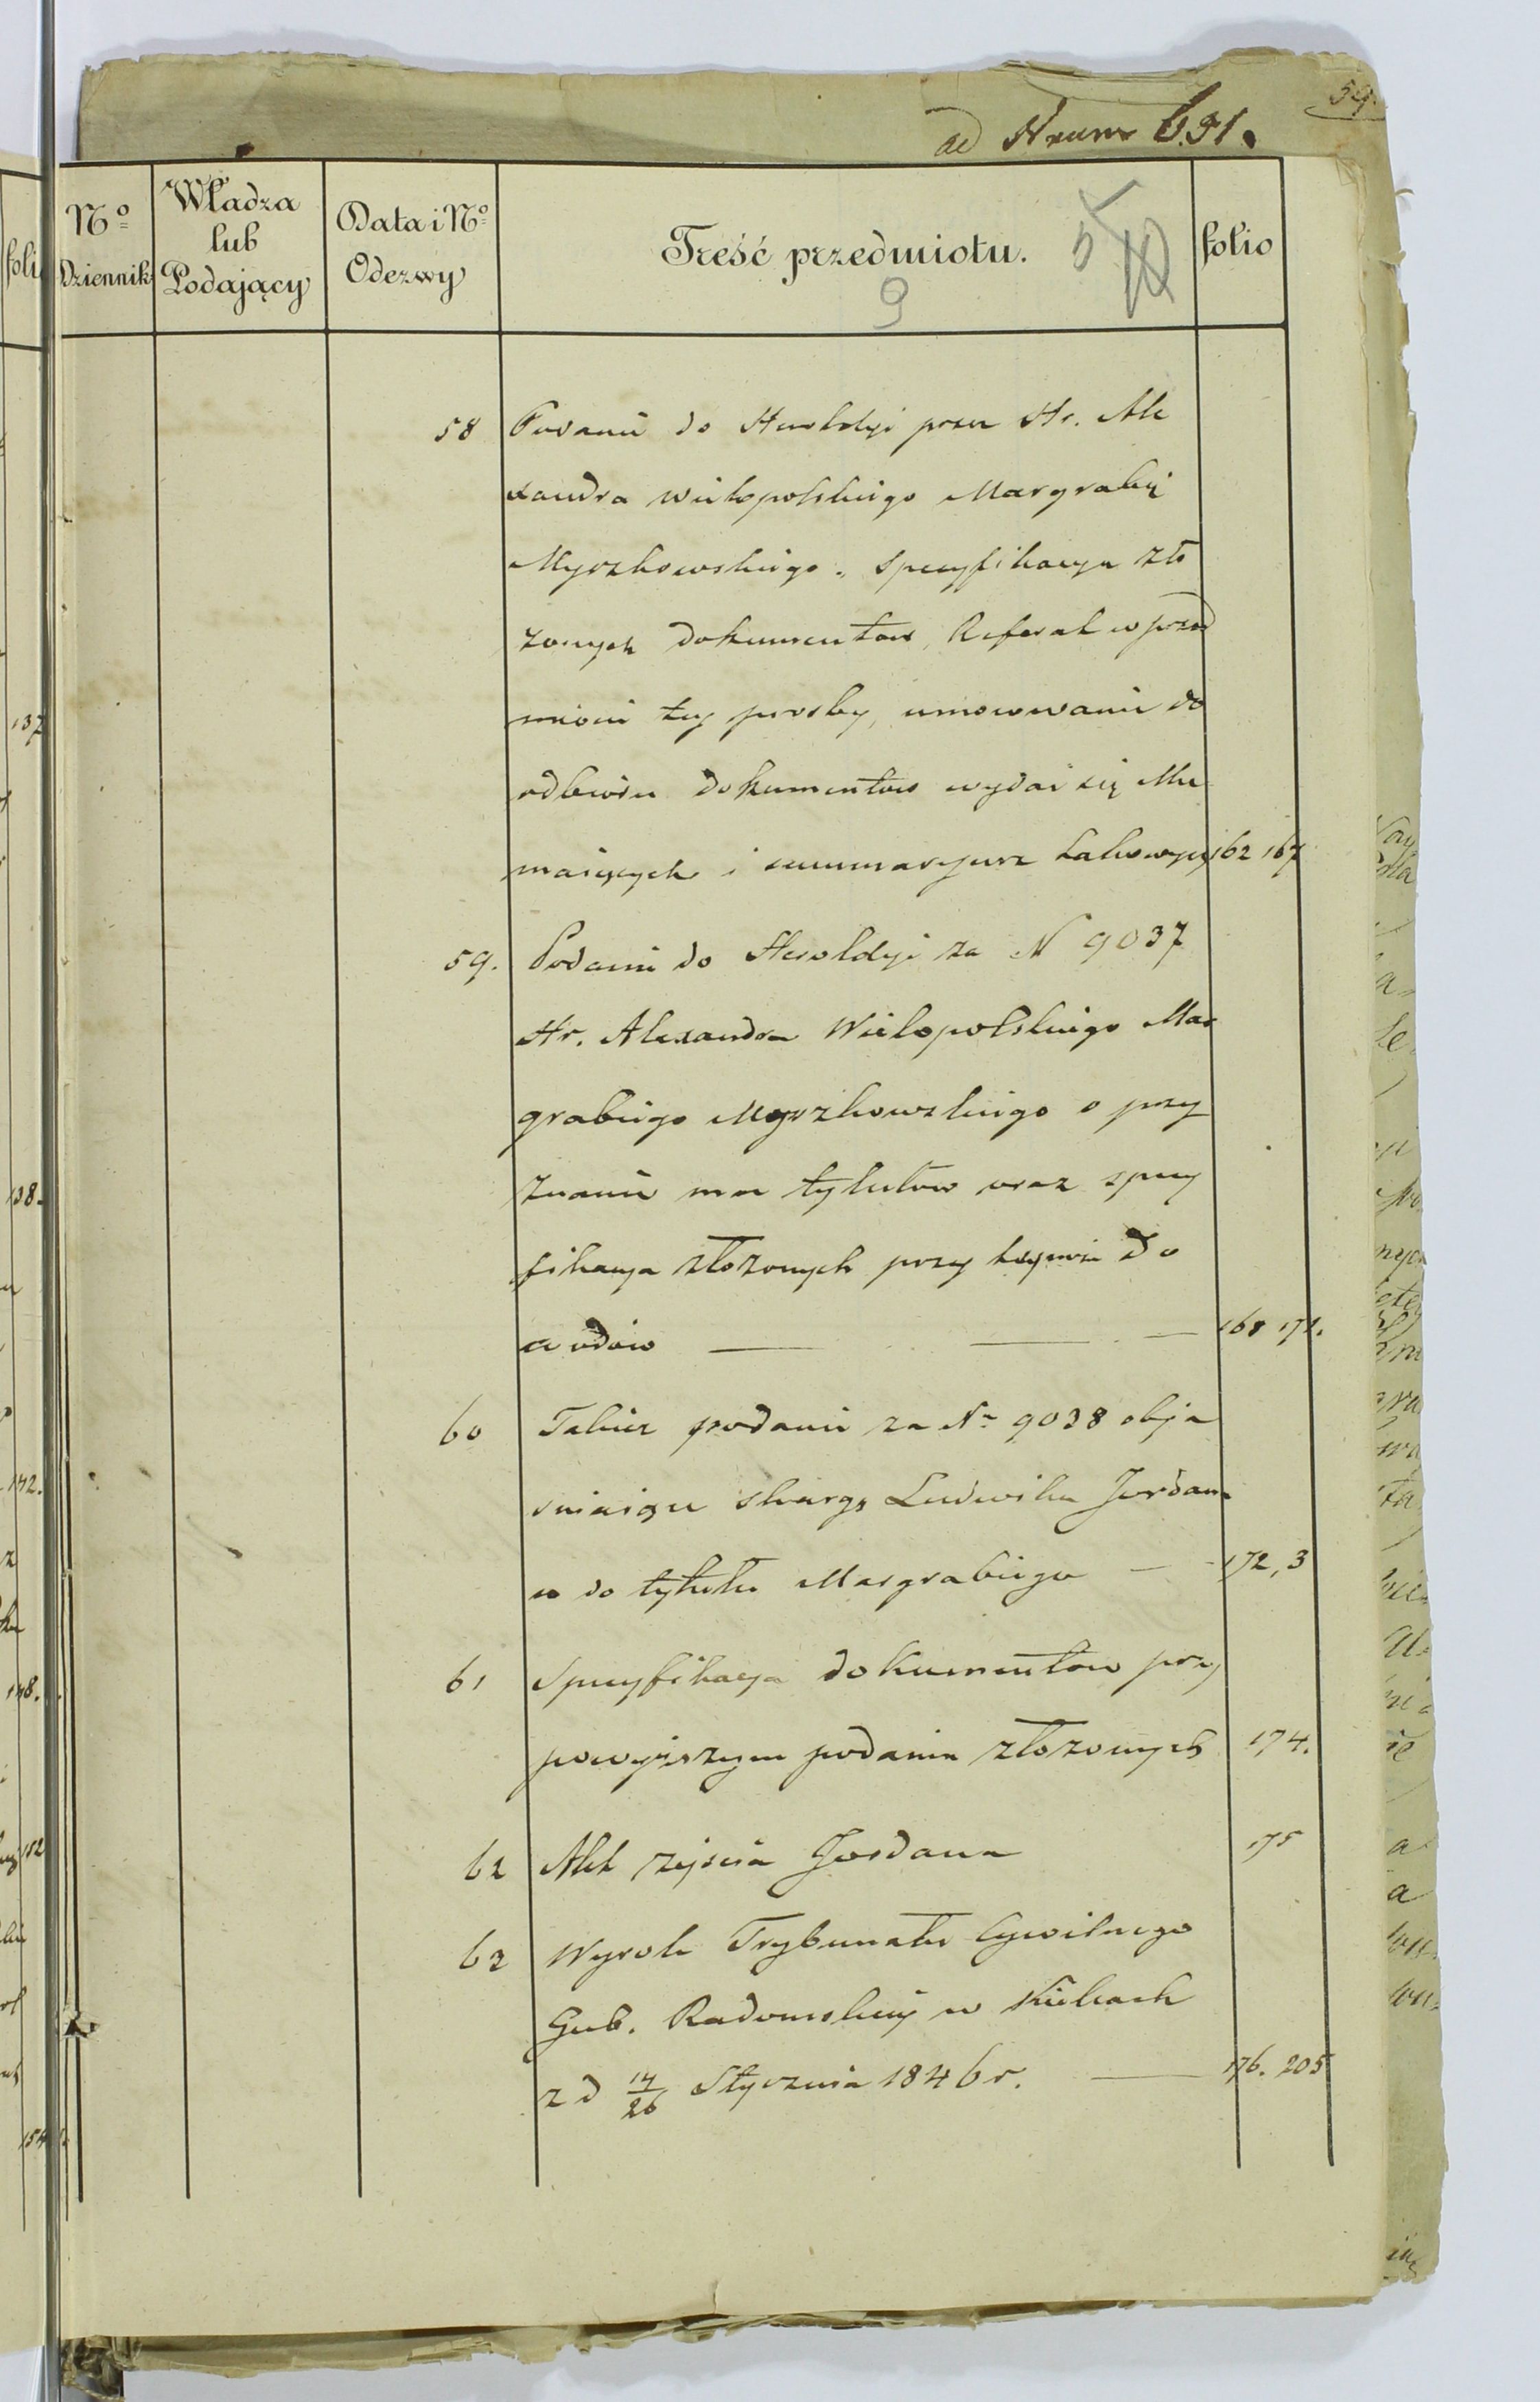 59.
ad Nrum 691.
No Dziennik
Władza lub Podający
Data i No Odezwy
Treść przedmiotu.
folio
9
58 Podanie do Heroldyi przez Hr. Ale
xandra Wielopolskiego Margrabię
Myszkowskiego, specyfikacya zło
żonych dokumentów, Referat w przed
miocie tej prosby, umocowanie do
odbioru dokumentow wydać się Mu
maiących i summaryusz takowych 162 167
59. Podanie do Heroldyi za N 9037
Hr. Alexandra Wielopolskiego Mar
grabiego Myszkowskiego o przy
znanie mu tytułów wraz specy
fikacya złozonych przy tejże do
wodów 168 171.
60 Takież podanie za No 9038 obja
sniaiące skargę Ludwika Jordana
co do tytułu Margrabiego 172, 3
61 Specyfikacya dokumentow przy
powyższym podaniu złozonych 174.
62 Akt zejscia Jordana 175
63 Wyrok Trybunału Cywilnego
Gub. Radomskiej w Kielcach
z d 14/26 Stycznia 1846 r. 176. 205